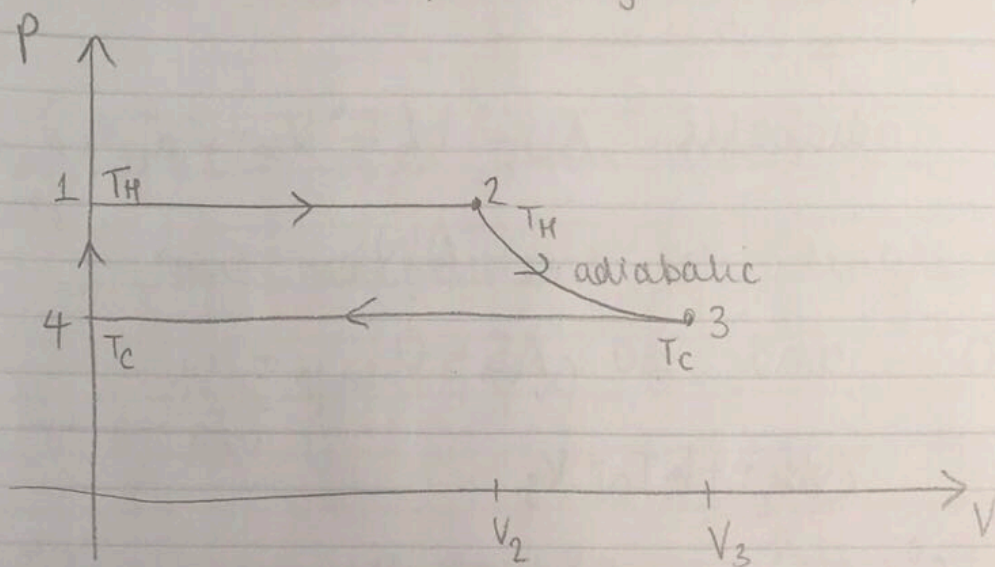 P
1 T_H
2
T_H
adiabatic
4
T_C
3
T_C
V_2
V_3
V